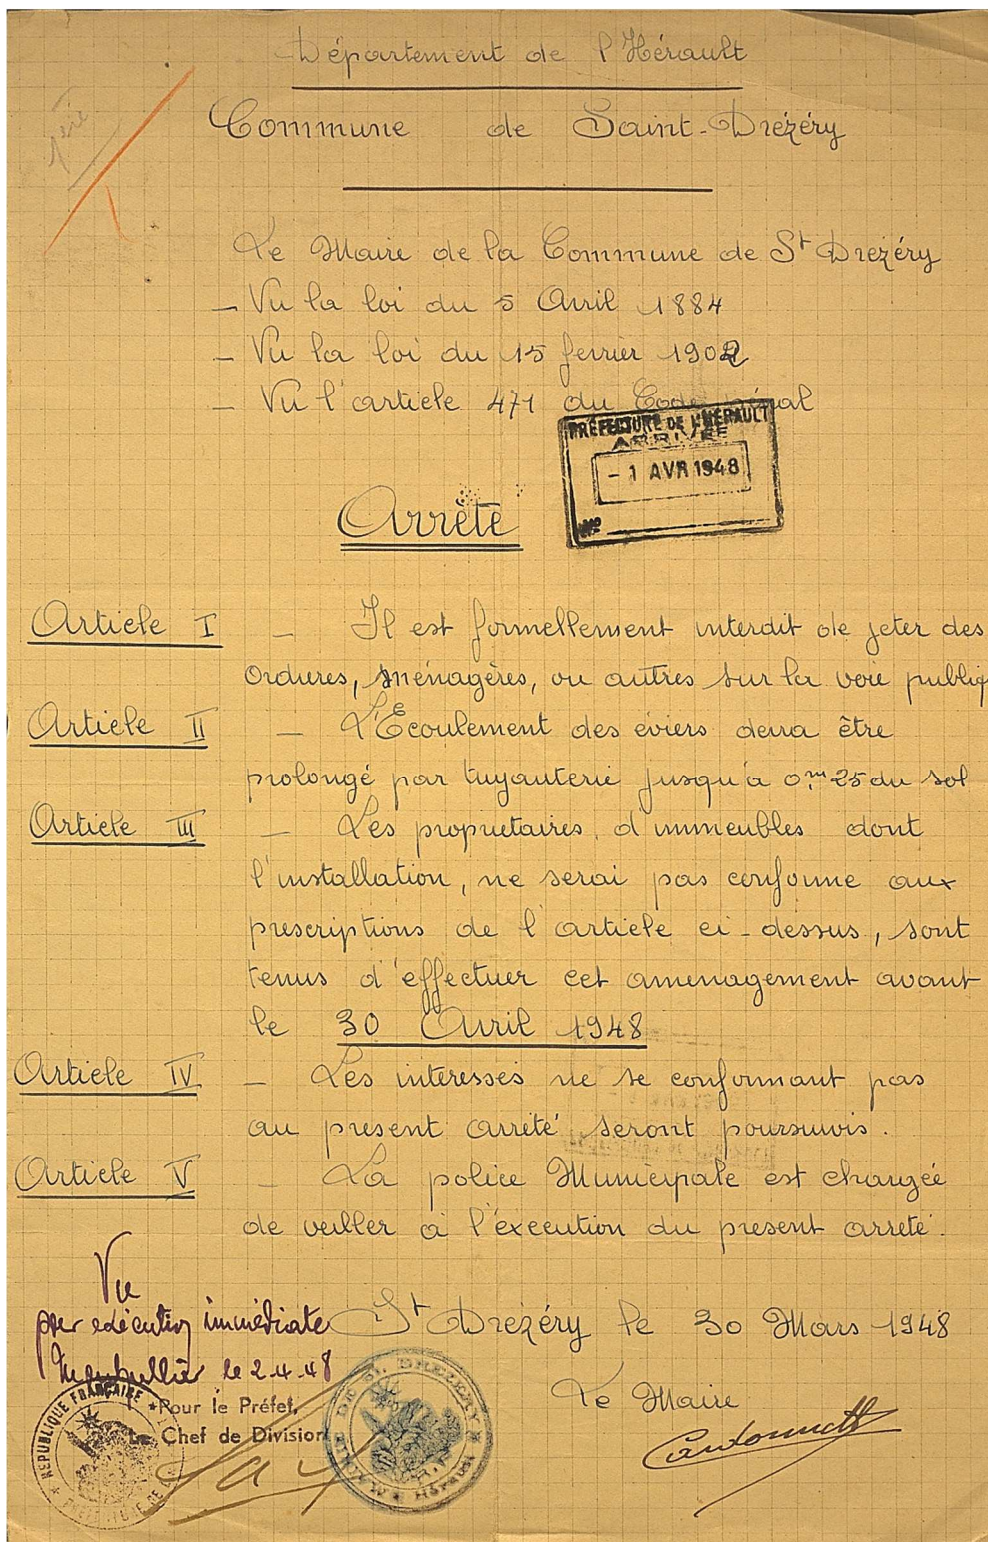 Département de l'Hérault
Commune de Saint-Drézéry
Le Maire de la Commune de St Drezéry
- Vu la loi du 5 Avril 1884
- Vu la loi du 15 fevrier 1902
- Vu l'article 471 du Code pénal
PRÉFECTURE DE L'HÉRAULT
ARRIVÉE
- 1 AVR 1948
No
Arrête
Article I - Il est formellement interdit de jeter des
ordures, ménagères, ou autres sur la voie publiq
Article II - L'Ecoulement des éviers devra être
prolongé par tuyauterie jusqu'à 0,m 25 du sol
Article III - Les propriétaires d'immeubles dont
l'installation, ne serai pas conforme aux
prescriptions de l'article ci-dessus, sont
tenus d'effectuer cet amenagement avant
le 30 Avril 1948
Article IV - Les intéressés ne se conformant pas
au présent arrêté seront poursuivis.
Article V - La police Municipale est chargée
de veiller à l'éxécution du present arreté.
Vu
pour exécution immédiate
Montpellier le 2-4-48
St Drezéry le 30 Mars 1948
Le Maire
Pour le Préfet,
Le Chef de Division
RÉPUBLIQUE FRANÇAISE
MAIRIE DE St DREZERY
Hérault